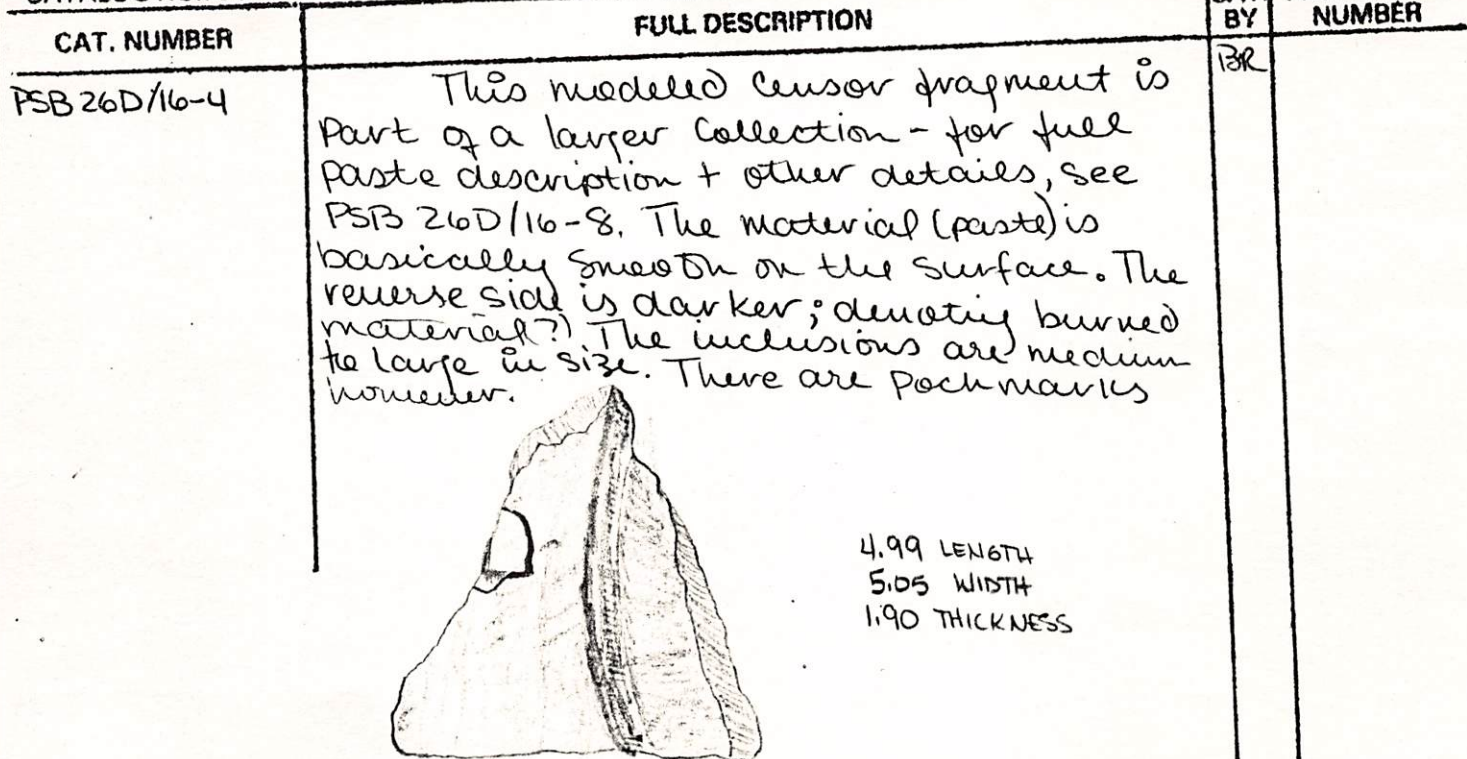 CAT. NUMBER
FULL DESCRIPTION
BY
NUMBER
PSB 26D/16-4
BR
This modeled Censor fragment is
Part of a larger Collection - for full
paste description + other details, see
PSB 26D/16-8. The material (paste) is
basically smooth on the surface. The
reverse side is darker; denoting burned
material?) The inclusions are medium
to large in size. There are pochmarks
however.
4.99 LENGTH
5.05 WIDTH
1.90 THICKNESS